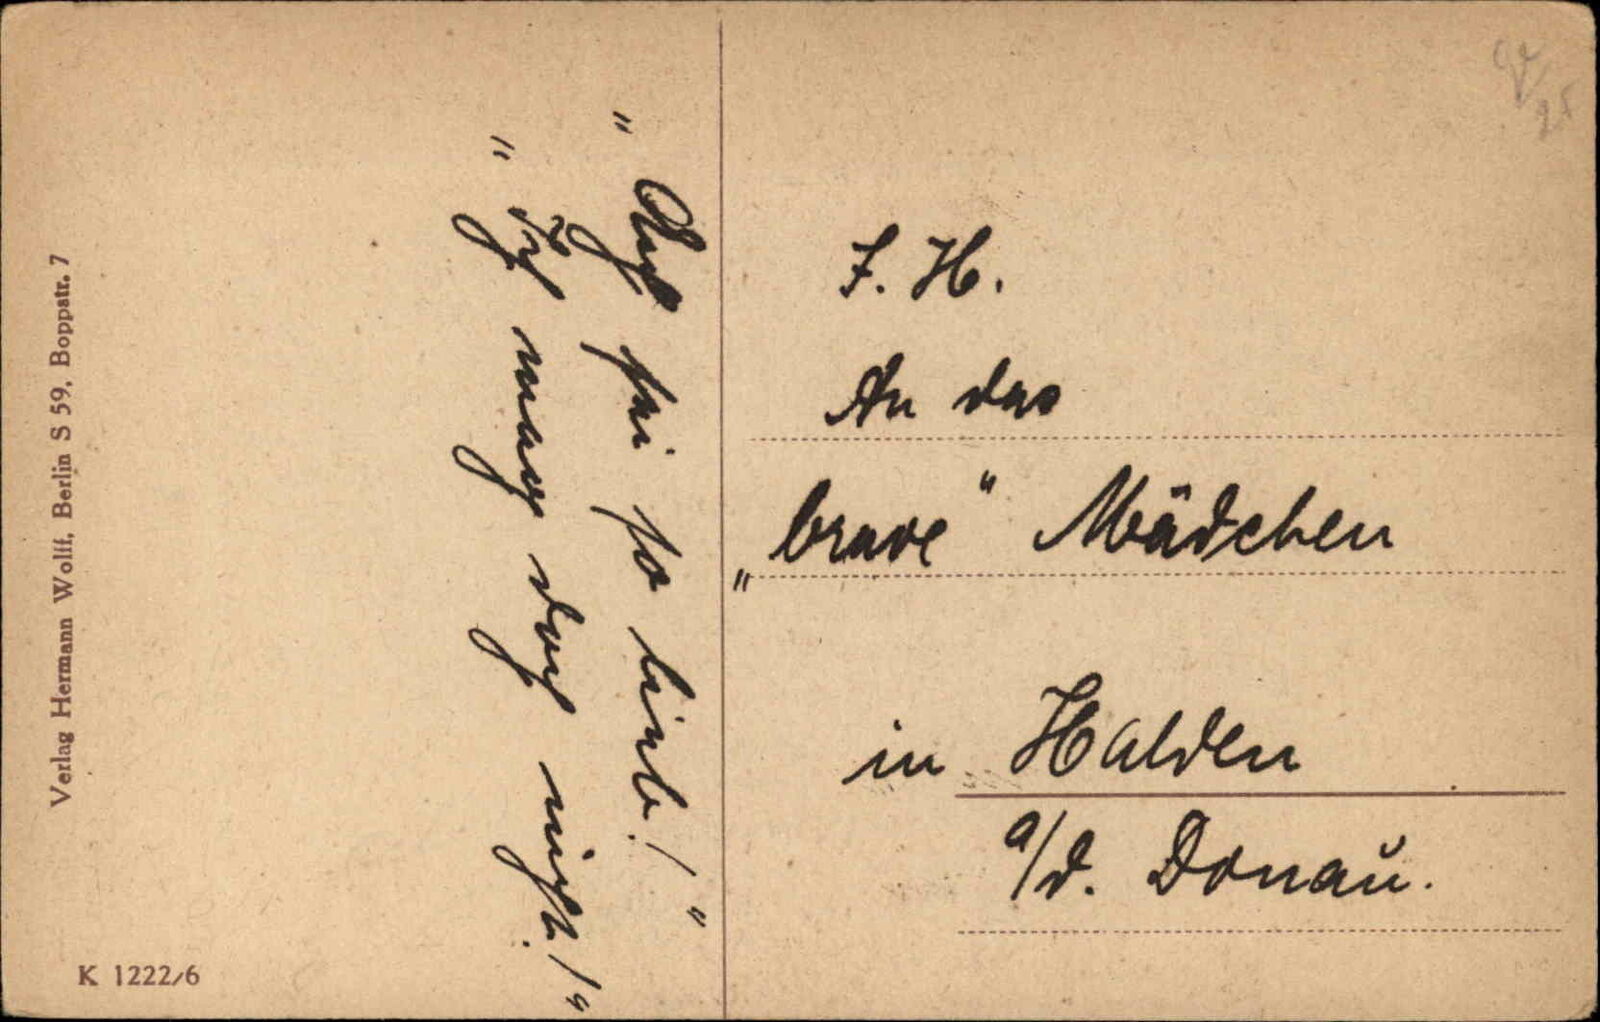 "Ach sei so lieb!"
"Ich mag doch nicht!"
J. H.
An das
„brave“ Mädchen
in Halden
a/d. Donau.
Verlag Hermann Wolff, Berlin S 59, Boppstr. 7
K 1222/6